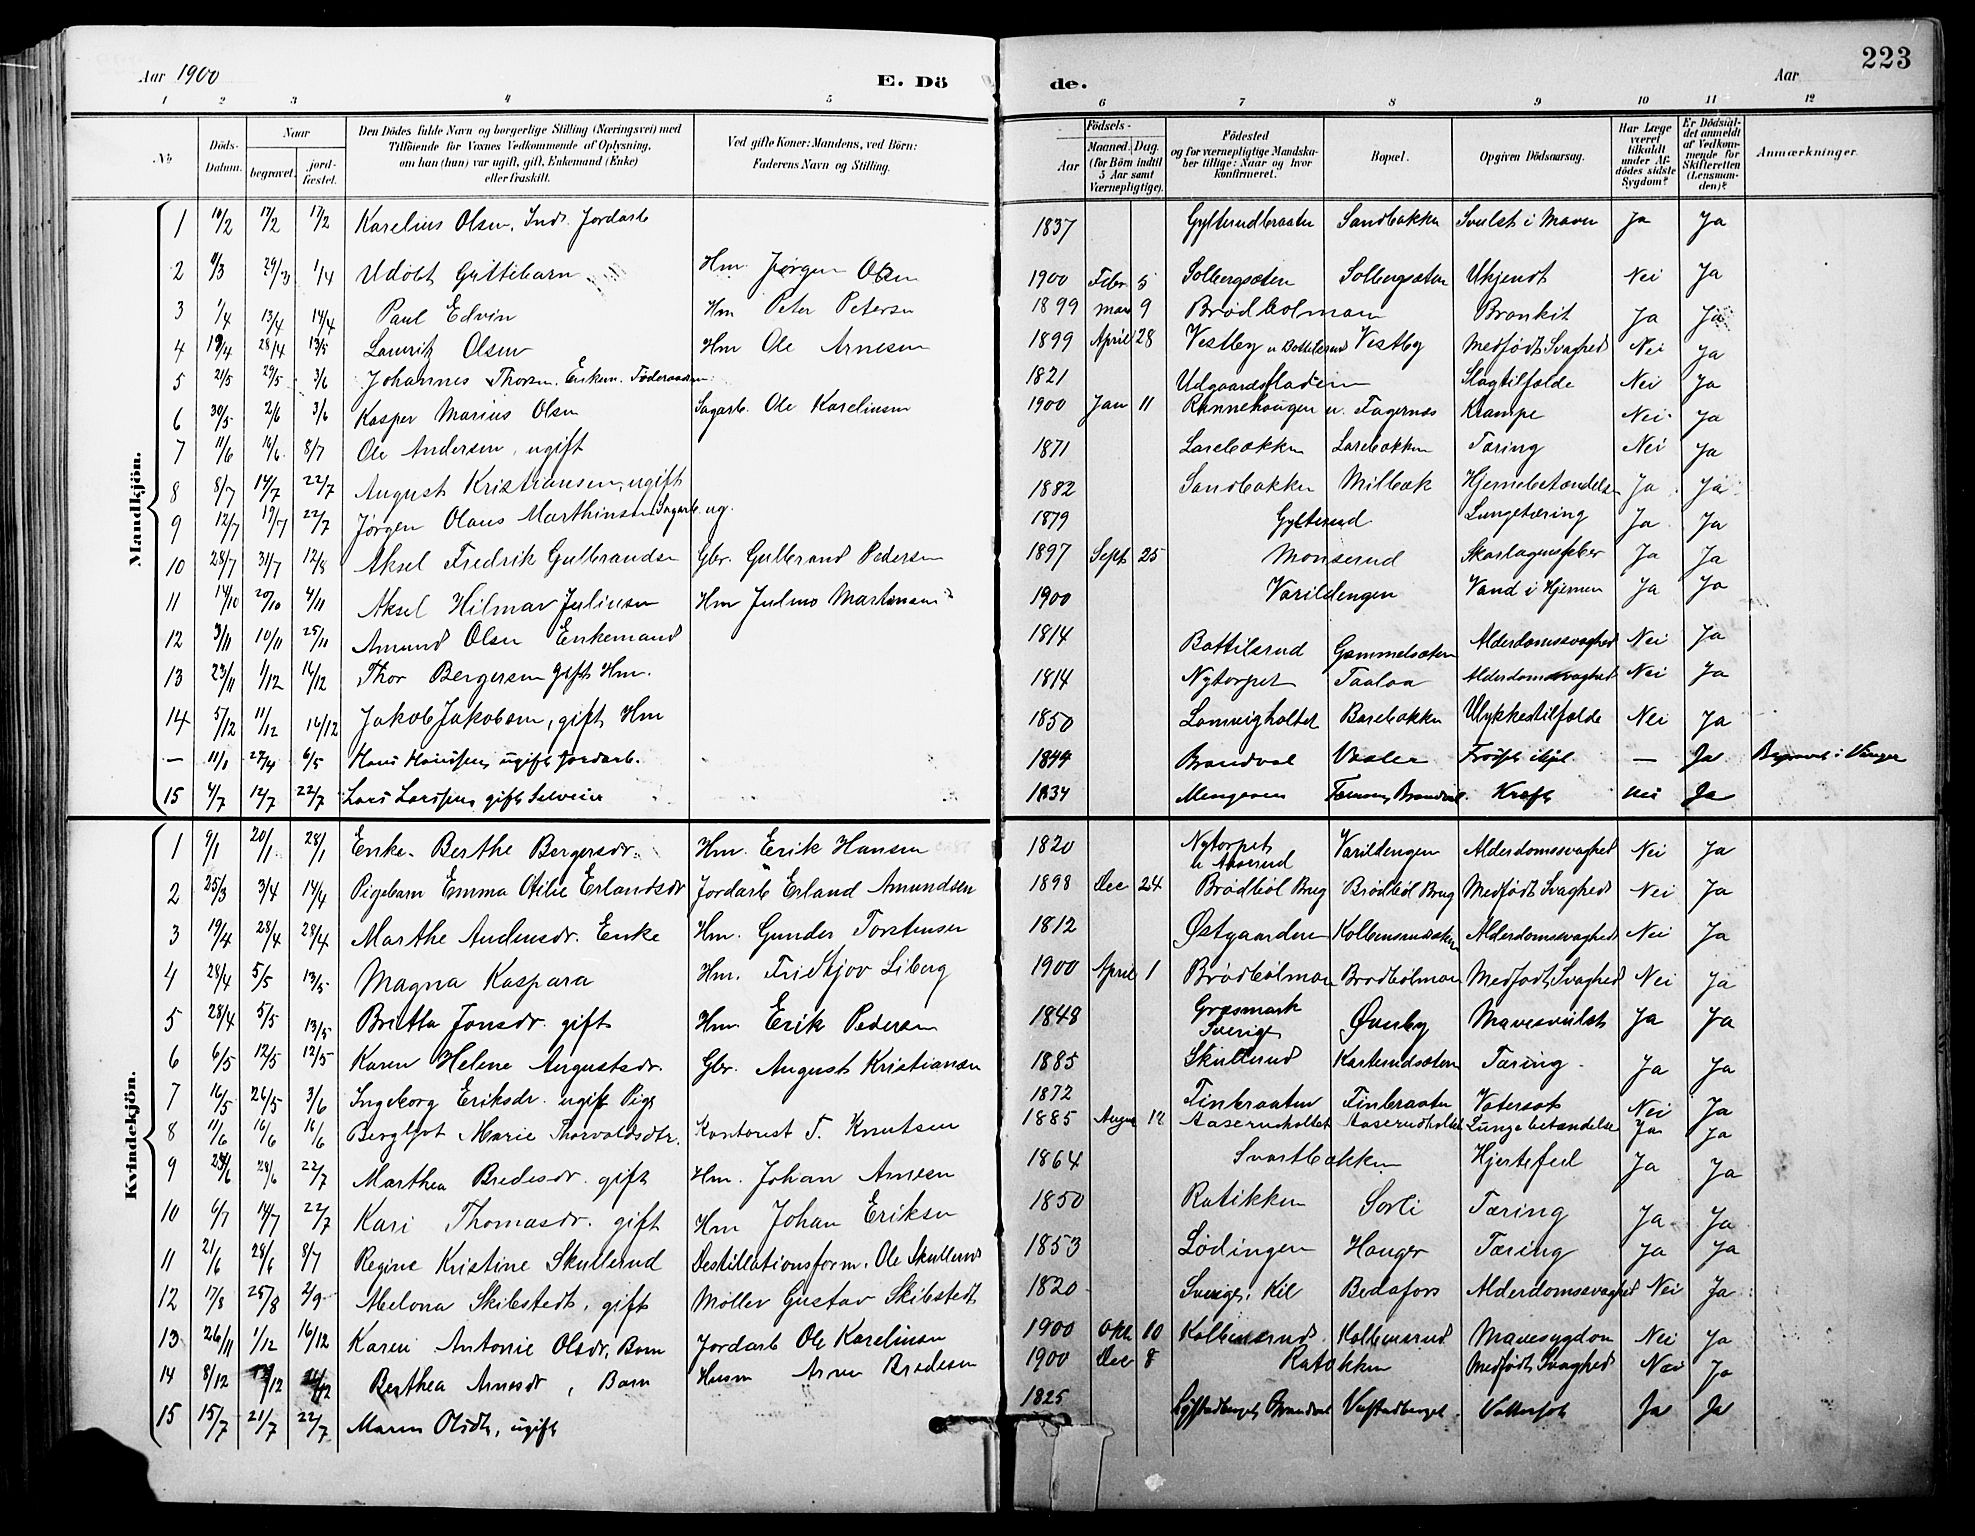 Aar 1900 E. Dö de. Aar 223
1 2 3 4 5 6 7 8 9 10 11 12
No
Döds-Datum.
Naar
begravet.
jord-fæstet.
Den Dödes fulde Navn og borgerlige Stilling (Næringsvei) med
Tilföiende for Voxnes Vedkommende af Oplysning,
om han (hun) var ugift, gift, Enkemand (Enke)
eller fraskilt.
Ved gifte Koner: Mandens, ved Börn:
Faderens Navn og Stilling.
Födsels-
Aar
Maaned. Dag.
(for Börn indtil
5 Aar samt
Værnepligtige).
Födested
og for værnepligtige Mandska-
ber tillige: Naar og hvor
konfirmeret.
Bopæl.
Opgiven Dödsaarsag.
Har Læge
været
tilkaldt
under Af-
dödes sidste
Sygdom?
Er Dödsfal-
det anmeldt
af Vedkom-
mende for
Skifteretten
(Lensman-
den)?
Anmærkninger.
Mandkjön.
1 16/2 17/2 17/2 Karelius Olsen, Ind. Jordarb 1837 Gylterudbraaten Sandbakken Svulst i Maven Ja Ja
2 8/3 29/3 1/4 Udöbt Guttebarn Hm. Jørgen Olsen 1900 Febr 5 Solbergsæten Solbergsæten Ukjendt Nei Ja
3 1/4 13/4 14/4 Paul Edvin Hm Peter Petersen 1899 mar 9 Brødbolmoen Bronkit Ja Ja
4 19/4 28/4 13/5 Lauritz Olsen Hm Ole Arnesen 1899 April 28 Vestby u. Bottilsrud Vestby Medfødt Svaghed Nei Ja
5 21/5 29/5 3/6 Johannes Thorsen. Enkem. Føderaadsm. 1821 Udgaardsfladen Slagtilfælde Nei Ja
6 30/5 2/6 3/6 Kasper Marius Olsen Sagarb. Ole Kareliusen 1900 Jan 11 Rønnehougen u. Fagernæs Krampe Nei Ja
7 11/6 16/6 8/7 Ole Andersen, ugift 1871 Larsbakken Larsbakken Tæring Nei Ja
8 8/7 14/7 22/7 August Kristiansen, ugift 1882 Sandbakken Milbak Hjernebetændelse Ja Ja
9 12/7 19/7 22/7 Jørgen Olaus Marthinsen Sagarb. ug. 1879 Gylterud Lungetæring Ja Ja
10 28/7 31/7 12/8 Aksel Fredrik Gulbrandsen Gbr. Gulbrand Pedersen 1897 Sept 25 Monserud Skarlagensfeber Ja Ja
11 14/10 20/10 4/11 Aksel Hilmar Juliusen Hm Julius Martinsen 1900 Varildengen Vand i Hjernen Ja Ja
12 3/11 10/11 25/11 Amund Olsen Enkemand 1814 Bottilsrud Gammelsæten Alderdomssvaghed Nei Ja
13 23/11 1/12 16/12 Thor Bergersen gift Hm. 1814 Nytorpet Taaloa Alderdomssvaghed Nei Ja
14 5/12 11/12 16/12 Jakob Jakobsen, gift Hm 1850 Lomvigholtet Barebakken Ulykkestilfælde Nei Ja
— 11/1 27/4 6/5 Hans Hansen, ugift Jordarb. 1844 Brandval Frosset ihjel — Ja Begravet i Vinger
15 4/7 12/7 22/7 Lars Larssen, gift Selveier 1834 Brandval. Kræft Nei Ja
Kvindekjön.
1 9/1 20/1 28/1 Enke. Berthe Bergersdr. Hm. Erik Hansen 1820 Nytorpet u Aaserud Varildengen Alderdomssvaghed Nei Ja
2 25/3 3/4 14/4 Pigebarn Emma Otilie Erlandsdr Jordarb Erland Amundsen 1898 Dec 24 Brødbøl Brug Brødbøl Brug Medfødt Svaghed Nei Ja
3 19/4 28/4 28/4 Marthe Audensdr. Enke Hm. Gunder Torstensen 1812 Østgaarden Kolbensrudsæten Alderdomssvaghed Nei Ja
4 28/4 5/5 13/5 Magna Kaspara Hm. Fridtjov Liberg 1900 April 1 Brødbølmoen Brødbølmoen Medfødt Svaghed Nei Ja
5 28/4 5/5 13/5 Britta Jonsdr. gift Hm. Erik Pedersen 1848 Græsmark Sverige Øvenby Mavesvulst Ja Ja
6 6/5 12/5 12/5 Karen Helene Augustsdr. Gbr. August Kristiansen 1885 Skullerud Karterudsæten Tæring Ja Ja
7 16/5 26/5 3/6 Ingeborg Eriksdr. ugift Pige 1872 Finbraaten Finbraaten Vatersot Nei Ja
8 11/6 16/6 16/6 Bergljot Marie Thorvaldsdtr. Kontorist T. Knutsen 1885 August 12 Aaserudholtet Aaserudholtet Lungebetændelse Ja Ja
9 23/6 28/6 22/7 Marthea Bredesdr. gift Hm. Johan Arnesen 1864 Svartbakken Hjertefeil Ja Ja
10 6/7 14/7 22/7 Kari Thomasdr. gift Hm Johan Eriksen 1850 Ratikken Sorli Tæring Ja Ja
11 21/6 28/6 8/7 Regine Kristine Skullerud Destillationsform. Ole Skullerud 1853 Lødingen Hauger Tæring Ja Ja
12 17/8 25/8 2/9 Melona Skibstedt, gift Møller Gustav Skibstedt 1820 Sverige, Kil Bedafors Alderdomssvaghed Nei Ja
13 26/11 1/12 16/12 Karen Antonie Olsdr, Barn Jordarb Ole Kareliusen 1900 Okt 10 Kolbensrud. Kolbensrud Mavesygdom Nei Ja
14 8/12 /12 /12 Berthea Arnesdr, Barn Husm Arne Bredesen 1900 Dec 8 Ratikken Medfødt Svaghed Nei Ja
15 15/7 21/7 22/7 Maren Olsdtr, ugift 1825 Løfstadberget, Brandval Vatersot Ja Ja